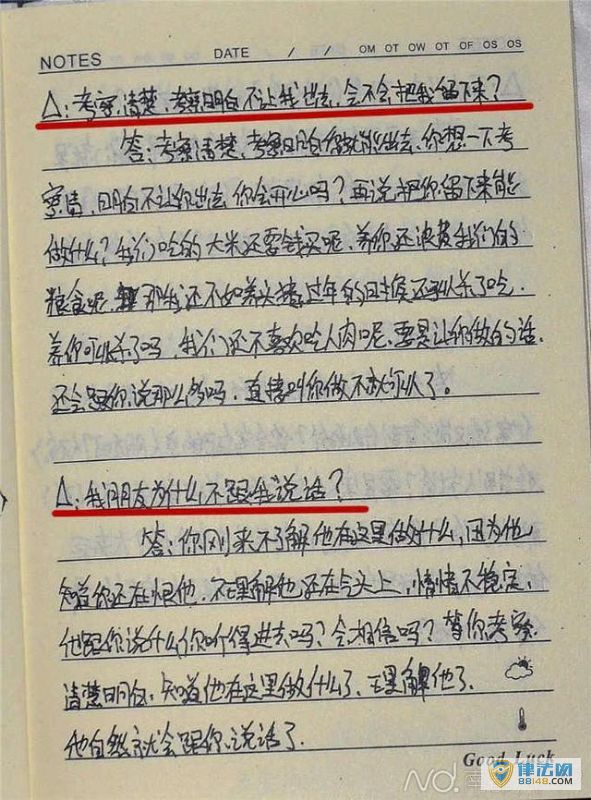 NOTES DATE / / OM OT OW OT OF OS OS
△：考察清楚，考察明白不让我出去，会不会把我留下来？
答：考察清楚，考察明白你就能出去，你想一下考
察清，明白不让你出去，你会开心吗？再说把你留下来能
做什么？我们吃的大米还要钱买呢，养你还浪费我们的
粮食呢，那我还不如养头猪，过年的时候还可以杀了吃，
养你可以杀了吗，我们还不喜欢吃人肉呢，要是让你做的话，
还会跟你说那么多吗，直接叫你做不就可以了。
△：我朋友为什么不跟我说话？
答：你刚来不了解他在这里做什么，因为他
知道你还在恨他，不理解他还在气头上，情绪不稳定，
他跟你说什么你听得进去吗？会相信吗？等你考察
清楚明白，知道他在这里做什么了，理解他了，
他自然就会跟你说话了．
Good Luck
律法网
88148.com